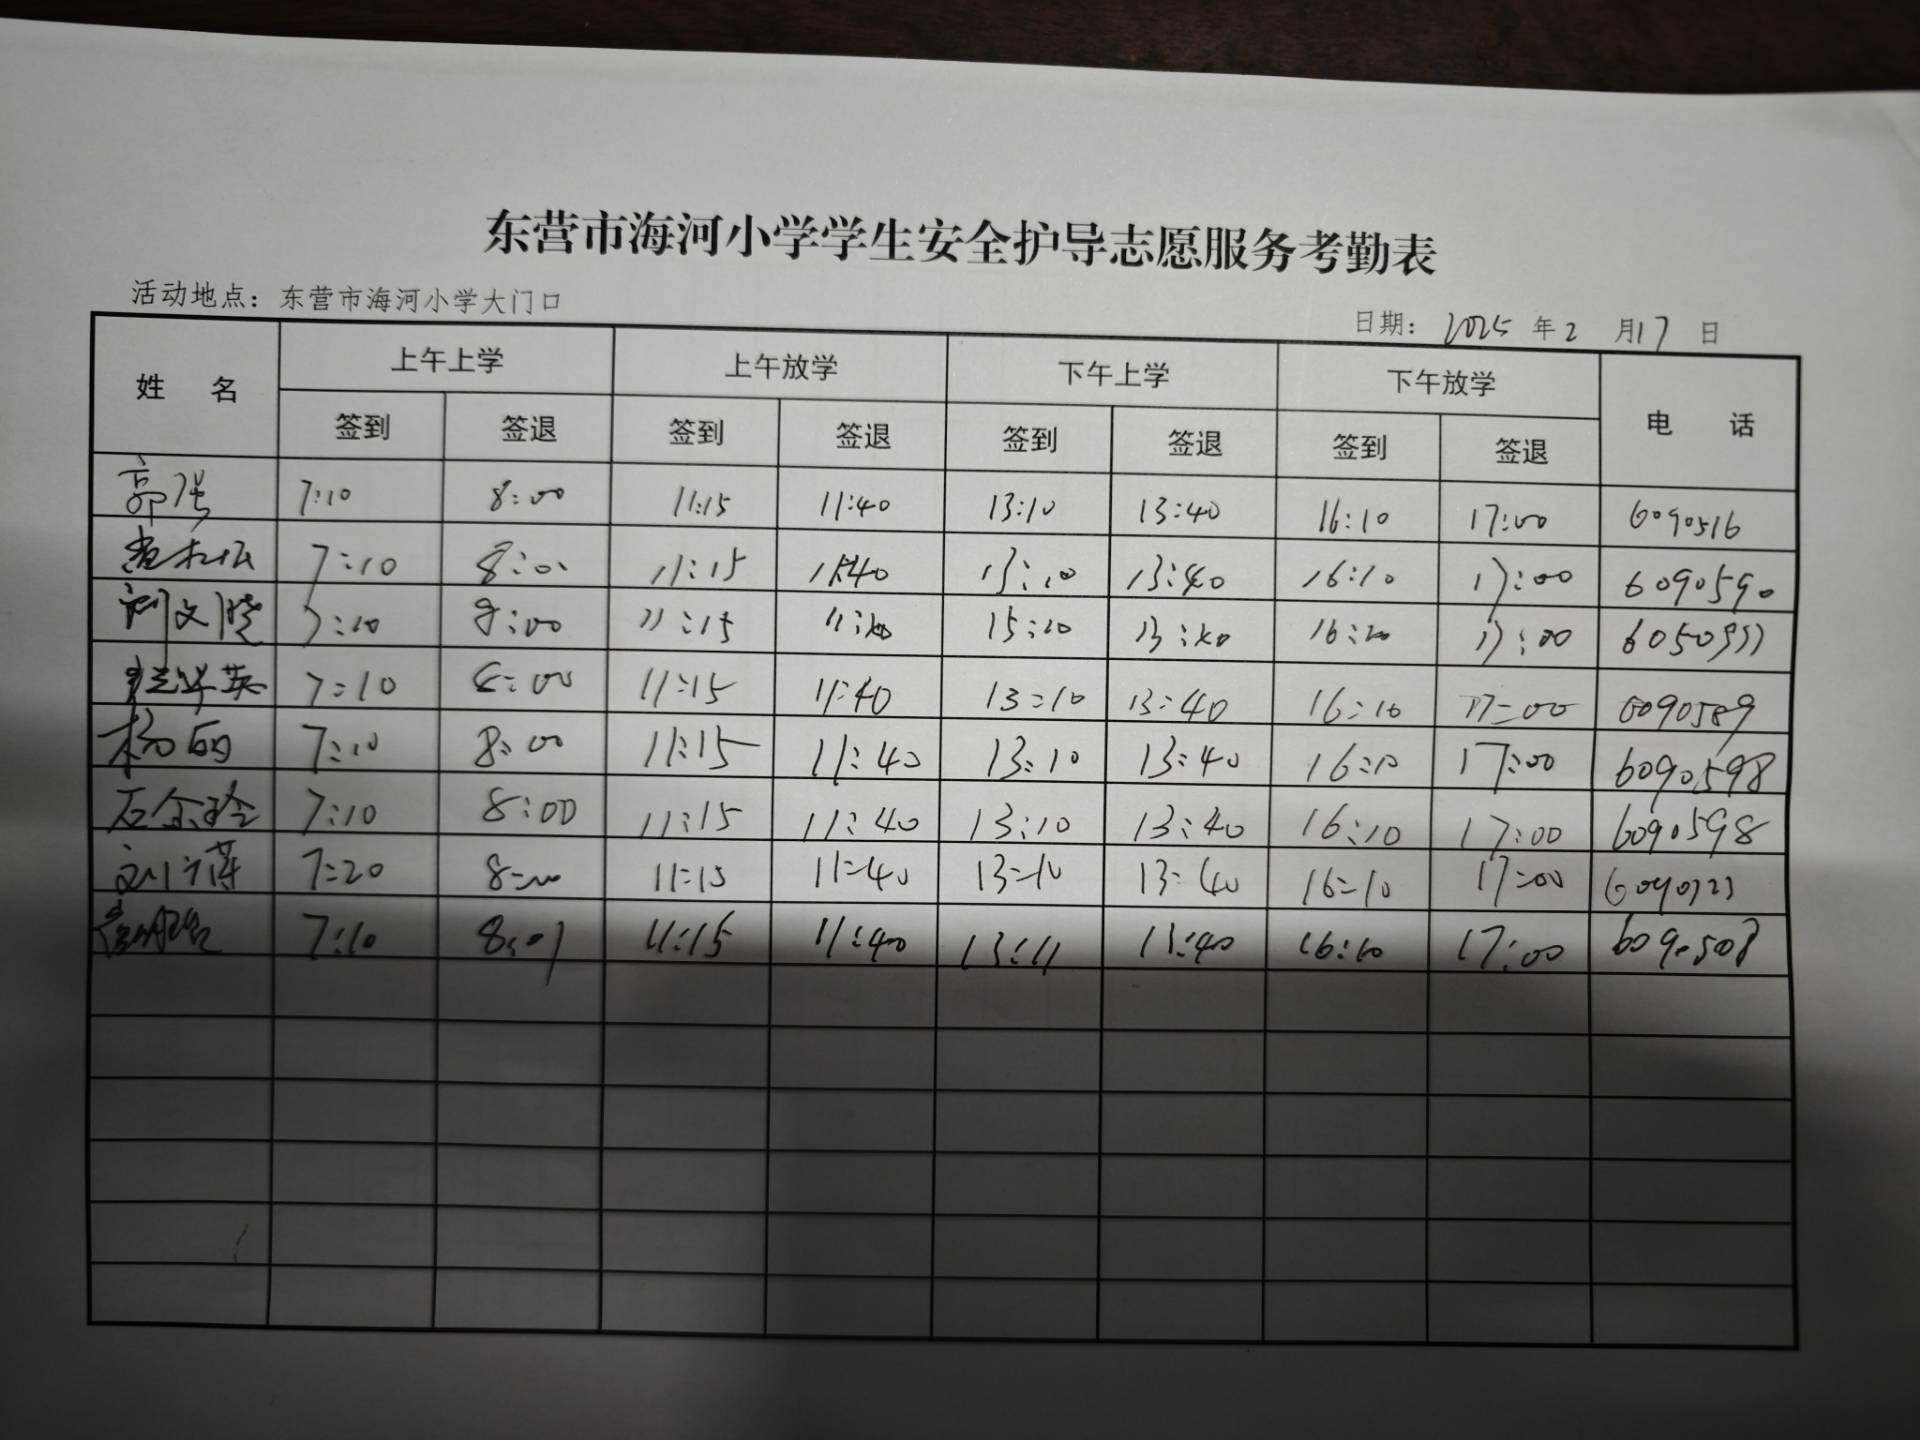 东营市海河小学学生安全护导志愿服务考勤表
活动地点：东营市海河小学大门口
日期：2025 年 2 月 17 日
姓 名 上午上学 上午放学 下午上学 下午放学 电 话
签到 签退 签到 签退 签到 签退 签到 签退
郭强 7:10 8:00 11:15 11:40 13:10 13:40 16:10 17:00 6090516
7:10 8:00 11:15 11:40 13:10 13:40 16:10 17:00 6090590
刘文晓 7:10 8:00 11:15 13:00
英 7:10 8:00 11:15 11:40 13:10 13:40 16:10 17:00 6090589
杨丽 7:10 8:00 11:15 11:40 13:10 13:40 16:10 17:00 6090598
石金玲 7:10 8:00 11:15 11:40 13:10 13:40 16:10 17:00 6090598
刘 7:20 8:00 11:15 11:40 13:10 13:40 16:10 17:00
7:10 8:01 11:15 11:40 13:11 13:40 16:10 17:00 6090508